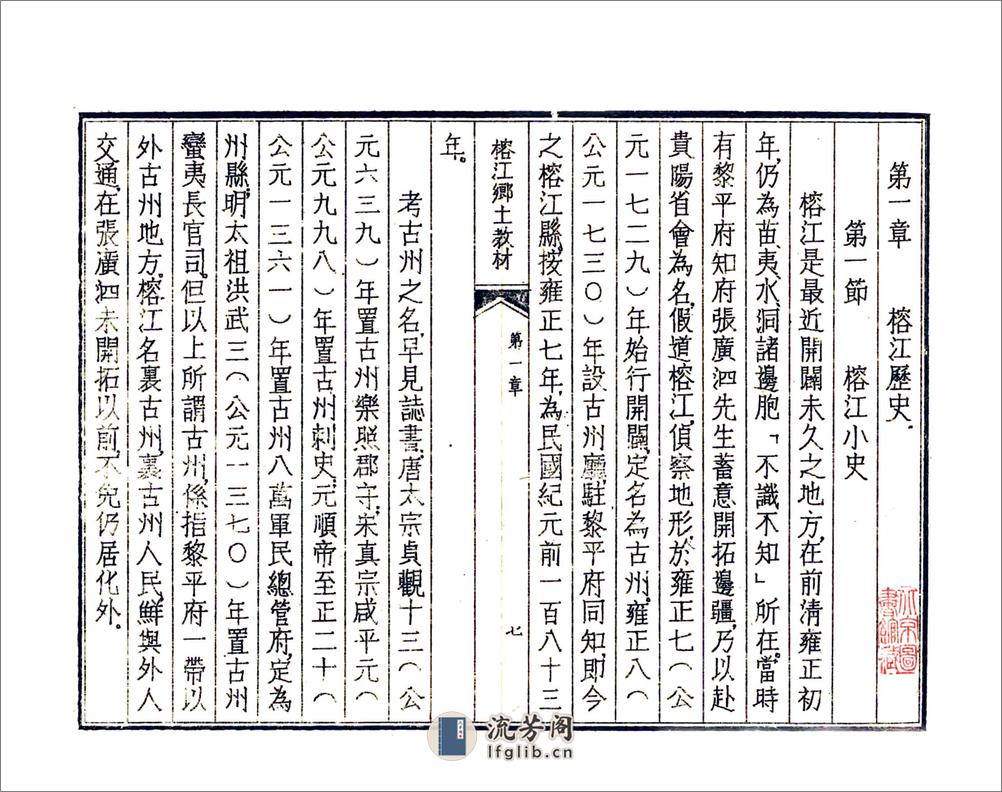 第一章　榕江歷史.
第一節　榕江小史
榕江是最近開闢未久之地方,在前清雍正初
年,仍為苗夷、水、洞諸邊胞「不識不知」所在。當時
有黎平府知府張廣泗先生蓄意開拓邊疆,乃以赴
貴陽省會為名,假道榕江,偵察地形,於雍正七(公
元一七二九)年始行開闢,定名為古州。雍正八(
公元一七三〇)年設古州廳,駐黎平府同知,即今
之榕江縣,按雍正七年,為民國紀元前一百八十三
榕江鄉土教材　第一章　七
年。
考古州之名,早見誌書,唐太宗貞觀十三(公
元六三九)年置古州樂照郡守。宋真宗咸平元(
公元九九八)年置古州刺史。元順帝至正二十(
公元一三六一)年置古州八萬軍民總管府,定為
州縣,明太祖洪武三(公元一三七〇)年置古州
蠻夷長官司。但以上所謂古州,係指黎平府一帶以
外古州地方。榕江名裏古州,裏古州人民,鮮與外人
交通,在張廣泗未開拓以前,不免仍居化外。
流芳阁
lfglib.cn